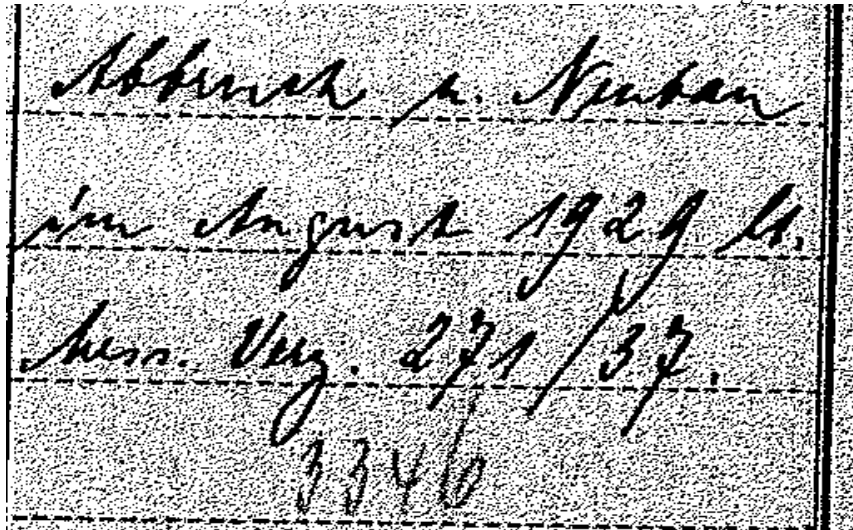 Abbruch u. Neubau
im August 1929 lt.
Mess. Verz. 271/37.
3346